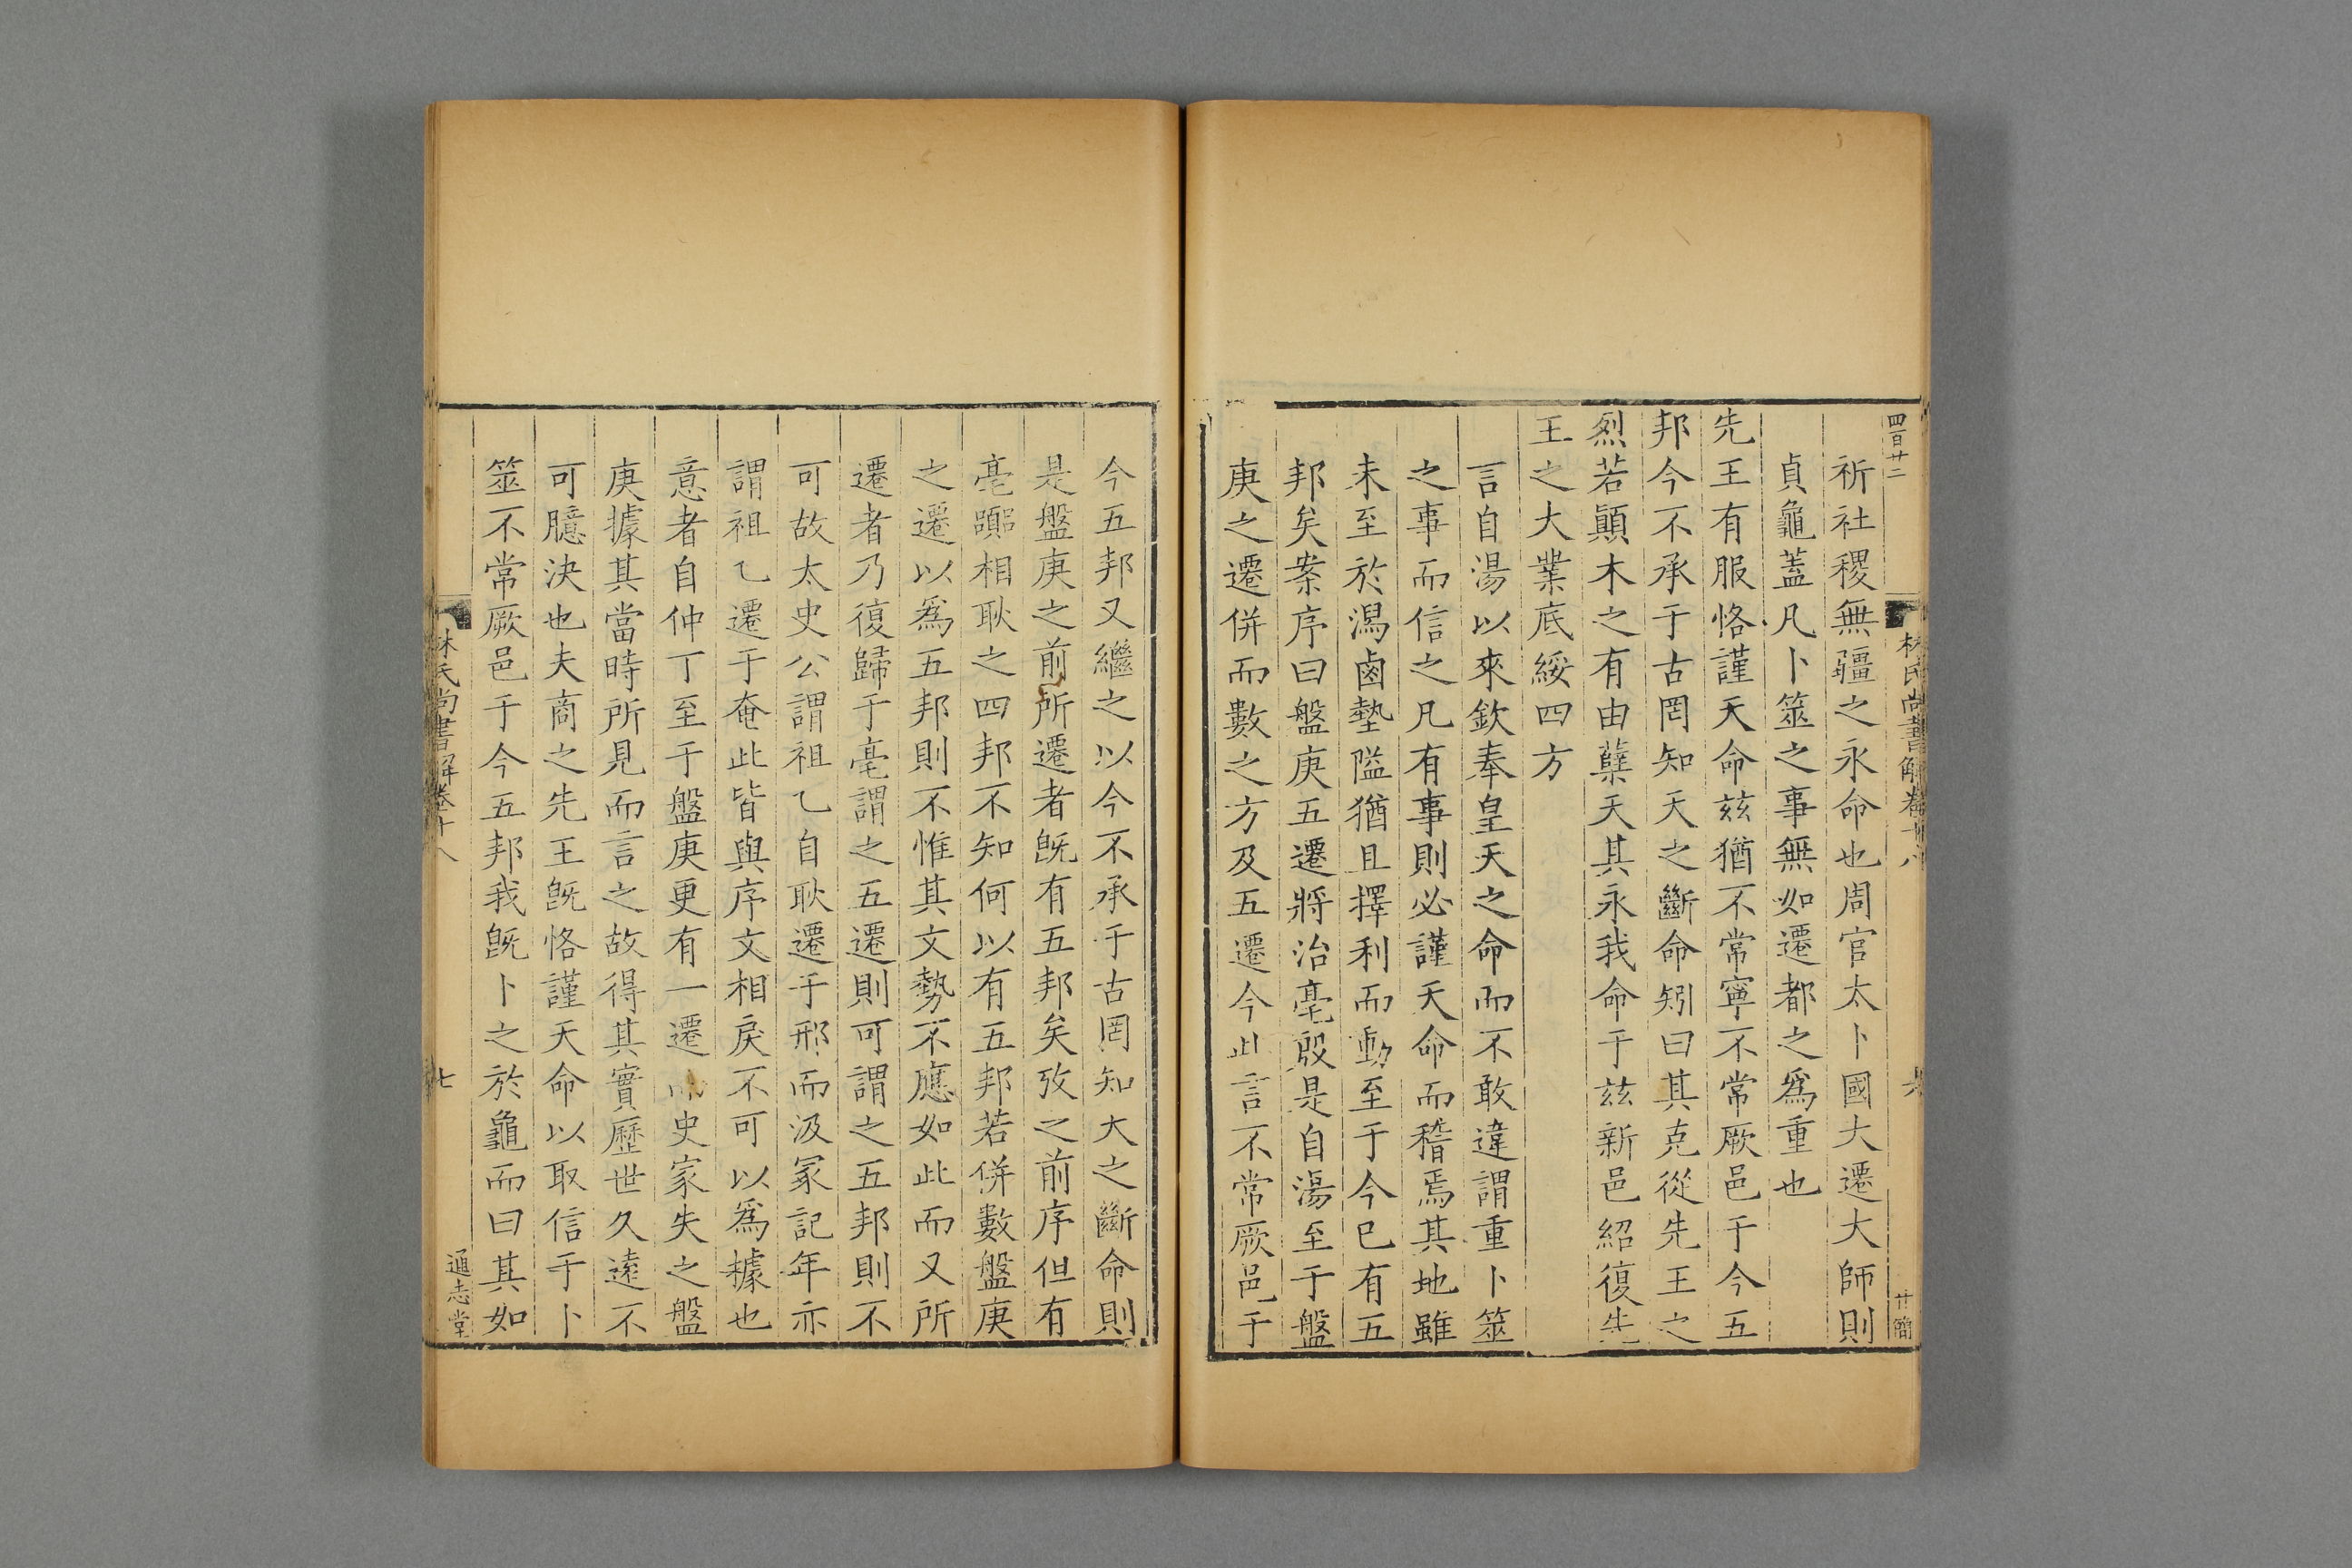 四百廿二
林氏尚書解卷十八
廿簡
祈社稷無疆之永命也周官太卜國大遷大師則
貞龜蓋凡卜筮之事無如遷都之為重也
先王有服恪謹天命兹猶不常寧不常厥邑于今五
邦今不承于古罔知天之斷命矧曰其克從先王之
烈若顛木之有由蘖天其永我命于兹新邑紹復先
王之大業厎綏四方
言自湯以來欽奉皇天之命而不敢違謂重卜筮
之事而信之凡有事則必謹天命而稽焉其地雖
未至於潟鹵墊隘猶且擇利而動至于今已有五
邦矣案序曰盤庚五遷將治亳殷是自湯至于盤
庚之遷併而數之方及五遷今此言不常厥邑于
今五邦又繼之以今不承于古罔知天之斷命則
是盤庚之前所遷者既有五邦矣攷之前序但有
亳囂相耿之四邦不知何以有五邦若併數盤庚
之遷以為五邦則不惟其文勢不應如此而又所
遷者乃復歸于亳謂之五遷則可謂之五邦則不
可故太史公謂祖乙自耿遷于邢而汲冢記年亦
謂祖乙遷于奄此皆與序文相戾不可以為據也
意者自仲丁至于盤庚更有一遷史家失之盤
庚據其當時所見而言之故得其實歷世久遠不
可臆決也夫商之先王既恪謹天命以取信于卜
筮不常厥邑于今五邦我既卜之於龜而曰其如
林氏尚書解卷十八
七
通志堂